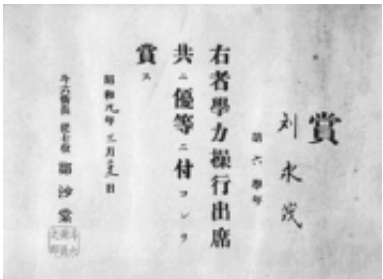 賞
第六學年
刘永茂
右者學力操行出席
共ニ優等ニ付コレヲ
賞ス
昭和九年三月 日
斗六街長 從七位 鄭沙棠